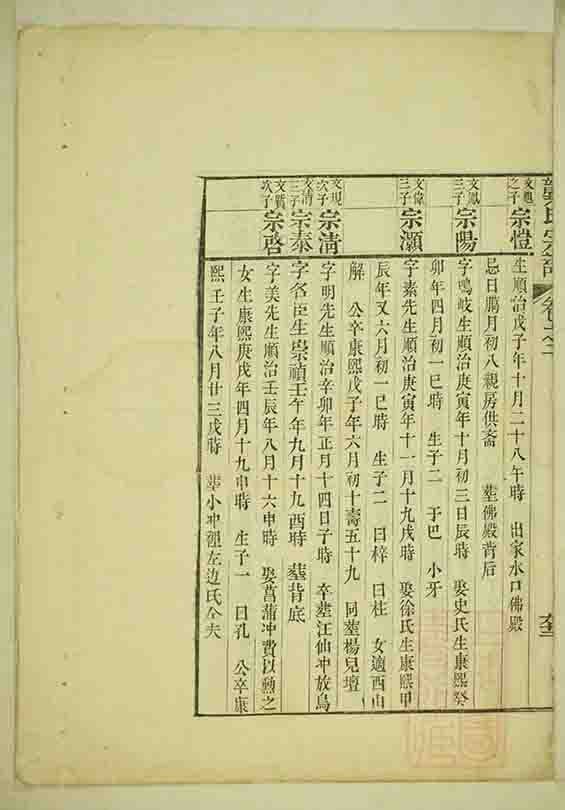 氏宗譜
文 之子 宗愷 生順治戊子年十月二十八午時 出家水口佛殿
忌日臘月初八親房供斋 塟佛殿背后
文鳳三子 宗陽 字鳴岐生順治庚寅年十月初三日辰時 娶史氏生康熙癸
卯年四月初一巳時 生子二 于巴 小牙
文偉三子 宗灝 字素先生順治庚寅年十一月十九戌時 娶徐氏生康熙甲
辰年又六月初一巳時 生子二 曰梓 曰柱 女適西山
解 公卒康熙戊子年六月初十壽五十九 同塟楊兒壇
文現次子 宗淸 字明先生順治辛卯年正月十四日子時 卒塟汪仙冲放鳥
文淸三子 宗泰 字名臣生崇禎壬午年九月十九酉時 塟背底
文質次子 宗啓 字美先生順治壬辰年八月十六申時 娶菖蒲冲費以勲之
女生康熙庚戌年四月十九申時 生子一 曰孔 公卒康
熙壬子年八月廿三戌時 塟小冲徑左边氏仝夫